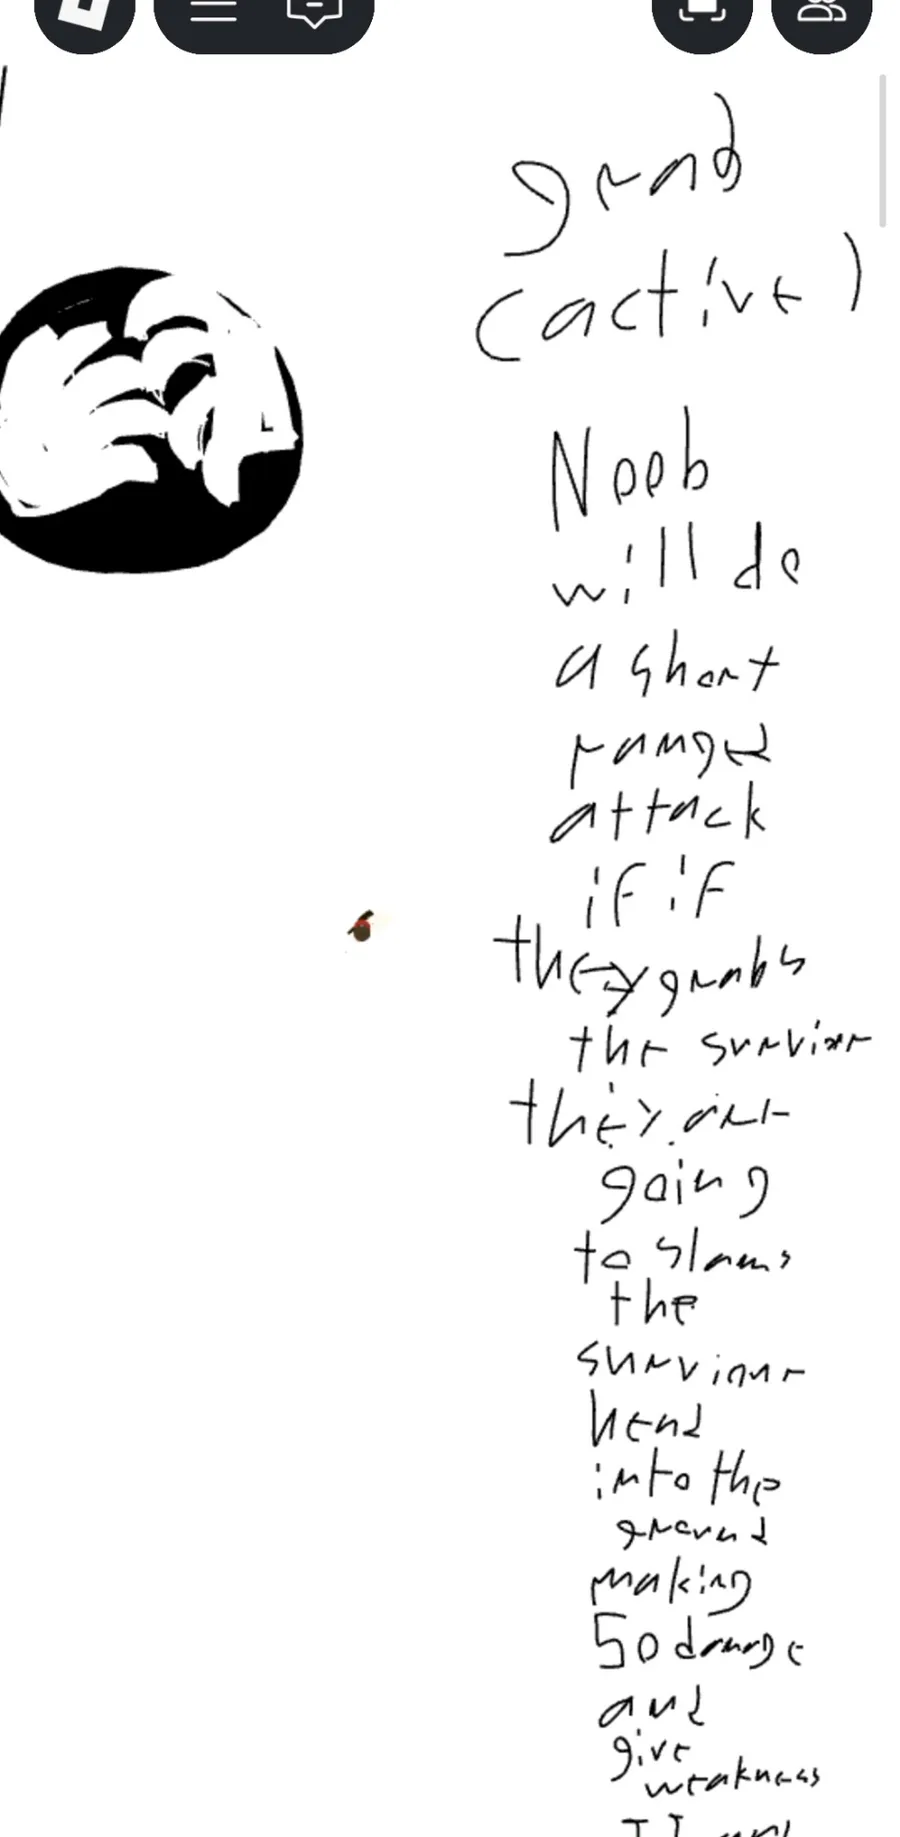 grab
(active)
Noob
will do
a short
ranged
attack
if if
they grabs
the survivor
they are
going
to slams
the
surviour
head
into the
ground
making
50 damage
and
give
weakness
II and